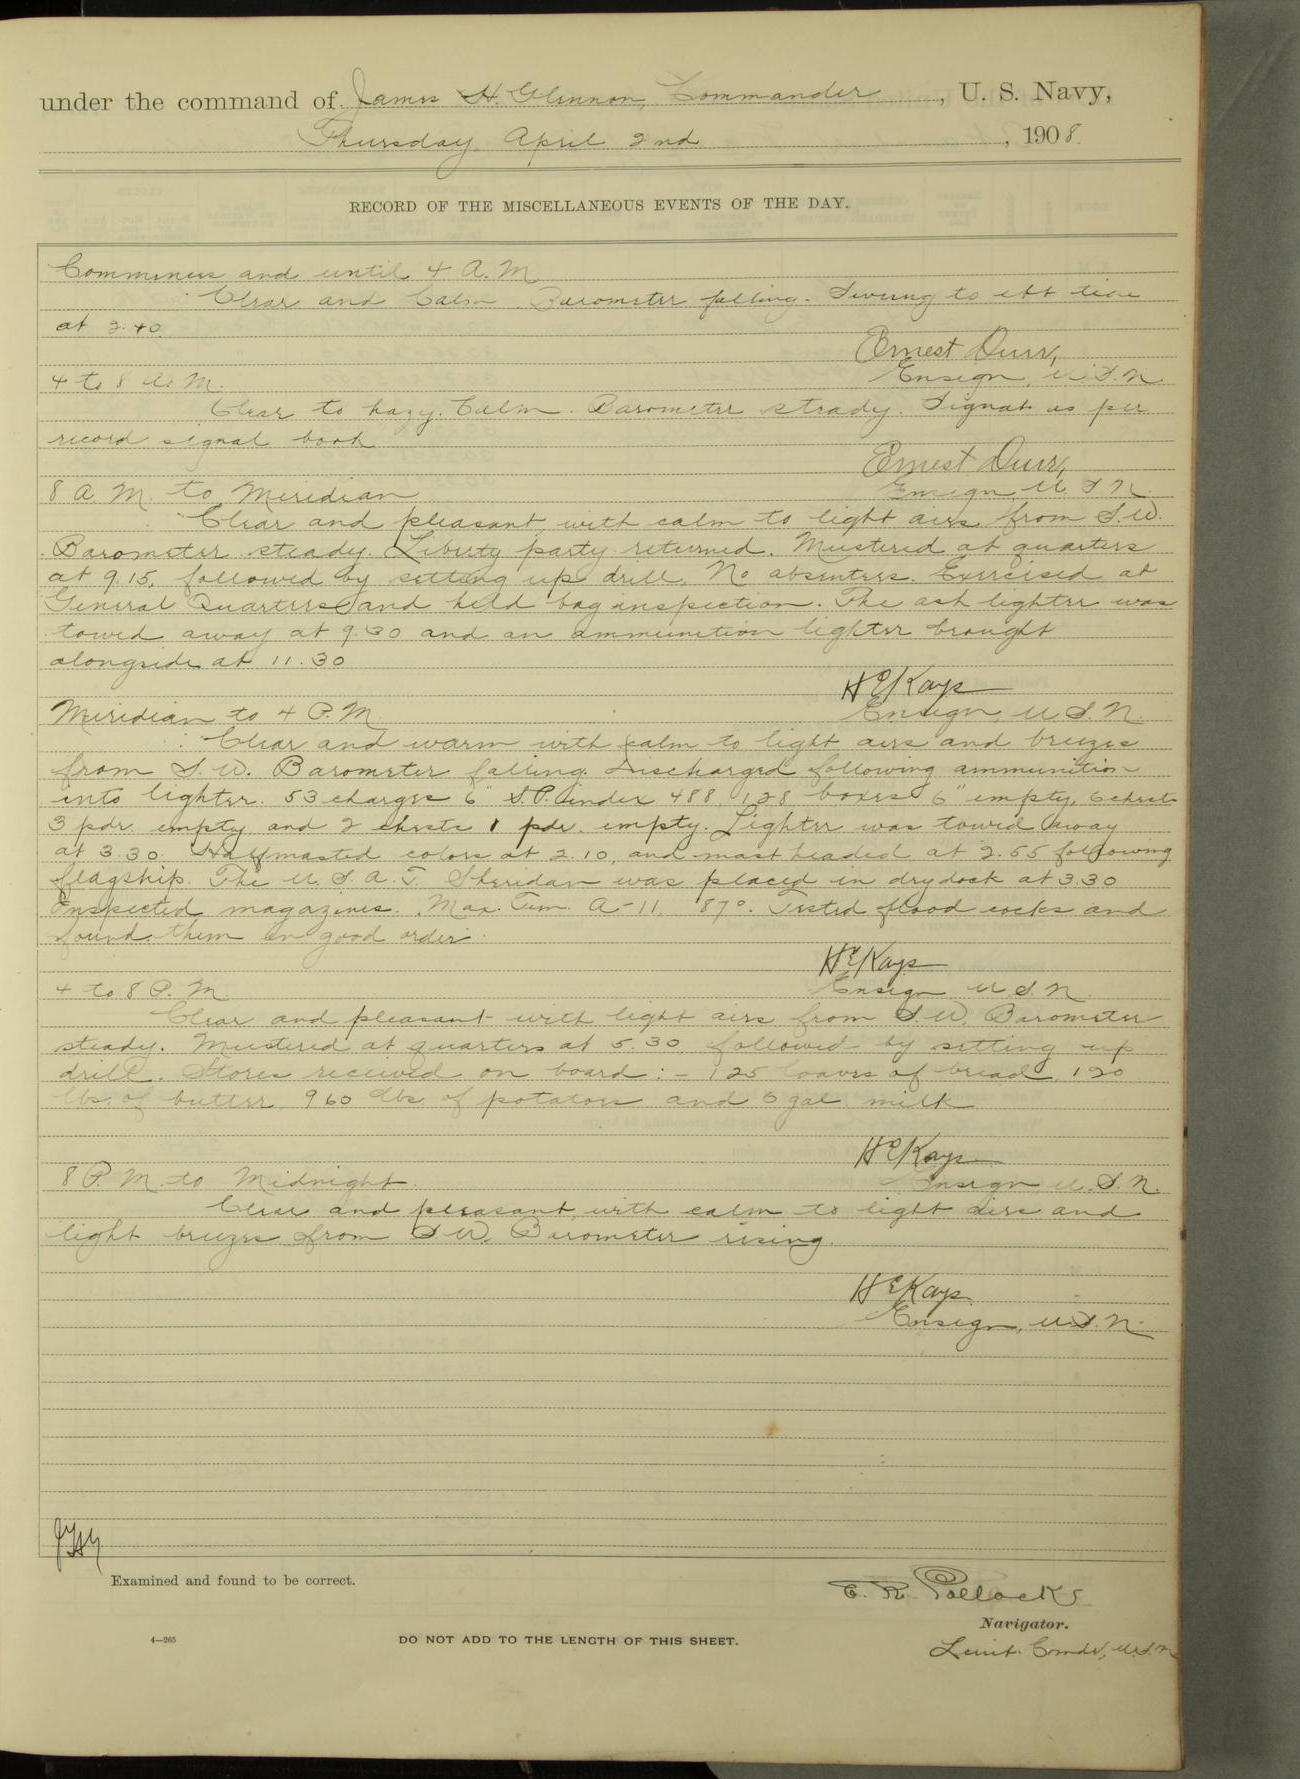 under the command of James H. Glennon, Commander, U. S. Navy,
Thursday April 2nd, 1908.
RECORD OF THE MISCELLANEOUS EVENTS OF THE DAY.
Commences and until 4 A.M.
Clear and Calm. Barometer falling. Swung to ebb tide
at 2.40.
Ernest Durr,
Ensign, U.S.N.
4 to 8 A.M.
Clear to hazy. Calm. Barometer steady. Signals as per
record signal book
Ernest Durr,
Ensign, U.S.N.
8 A.M. to Meridian
Clear and pleasant, with calm to light airs from S.W.
Barometer steady. Liberty party returned. Mustered at quarters
at 9.15, followed by setting up drill. No absentees. Exercised at
General Quarters and held bag inspection. The ash lighter was
towed away at 9.30 and an ammunition lighter brought
alongside at 11.30
H E Kays
Ensign, U.S.N.
Meridian to 4 P.M.
Clear and warm with calm to light airs and breezes
from S.W. Barometer falling. Discharged following ammunition
into lighter. 53 charges 6" S.P. index 488, 128 boxes 6" empty, 6 chests
3 pdr. empty and 2 chests 1 pdr. empty. Lighter was towed away
at 3.30. Halfmasted colors at 2.10, and mast headed at 2.55 following
flagship. The U.S.A.T. Sheridan was placed in drydock at 3.30
Inspected magazines. Max. Tem. A-11, 87°. Tested flood cocks and
found them in good order.
H E Kays
Ensign U.S.N.
4 to 8 P.M.
Clear and pleasant with light airs from S.W. Barometer
steady. Mustered at quarters at 5.30, followed by setting up
drill. Stores received on board:- 125 loaves of bread, 120
lbs. of butter, 960 lbs of potatoes and 6 gal. milk
H E Kays
Ensign U.S.N.
8 P.M. to Midnight.
Clear and pleasant, with calm to light airs and
light breezes from S.W. Barometer rising.
H E Kays.
Ensign, U.S.N.
JHG
Examined and found to be correct.
E. R. Pollock
Navigator.
Lieut. Comdr, U.S.N
4—265
DO NOT ADD TO THE LENGTH OF THIS SHEET.